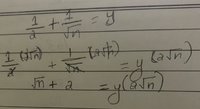 1/2 + 1/√n = y
1/2 (2√n) + 1/√n (2√n) = y (2√n)
√n + 2 = y(2√n)